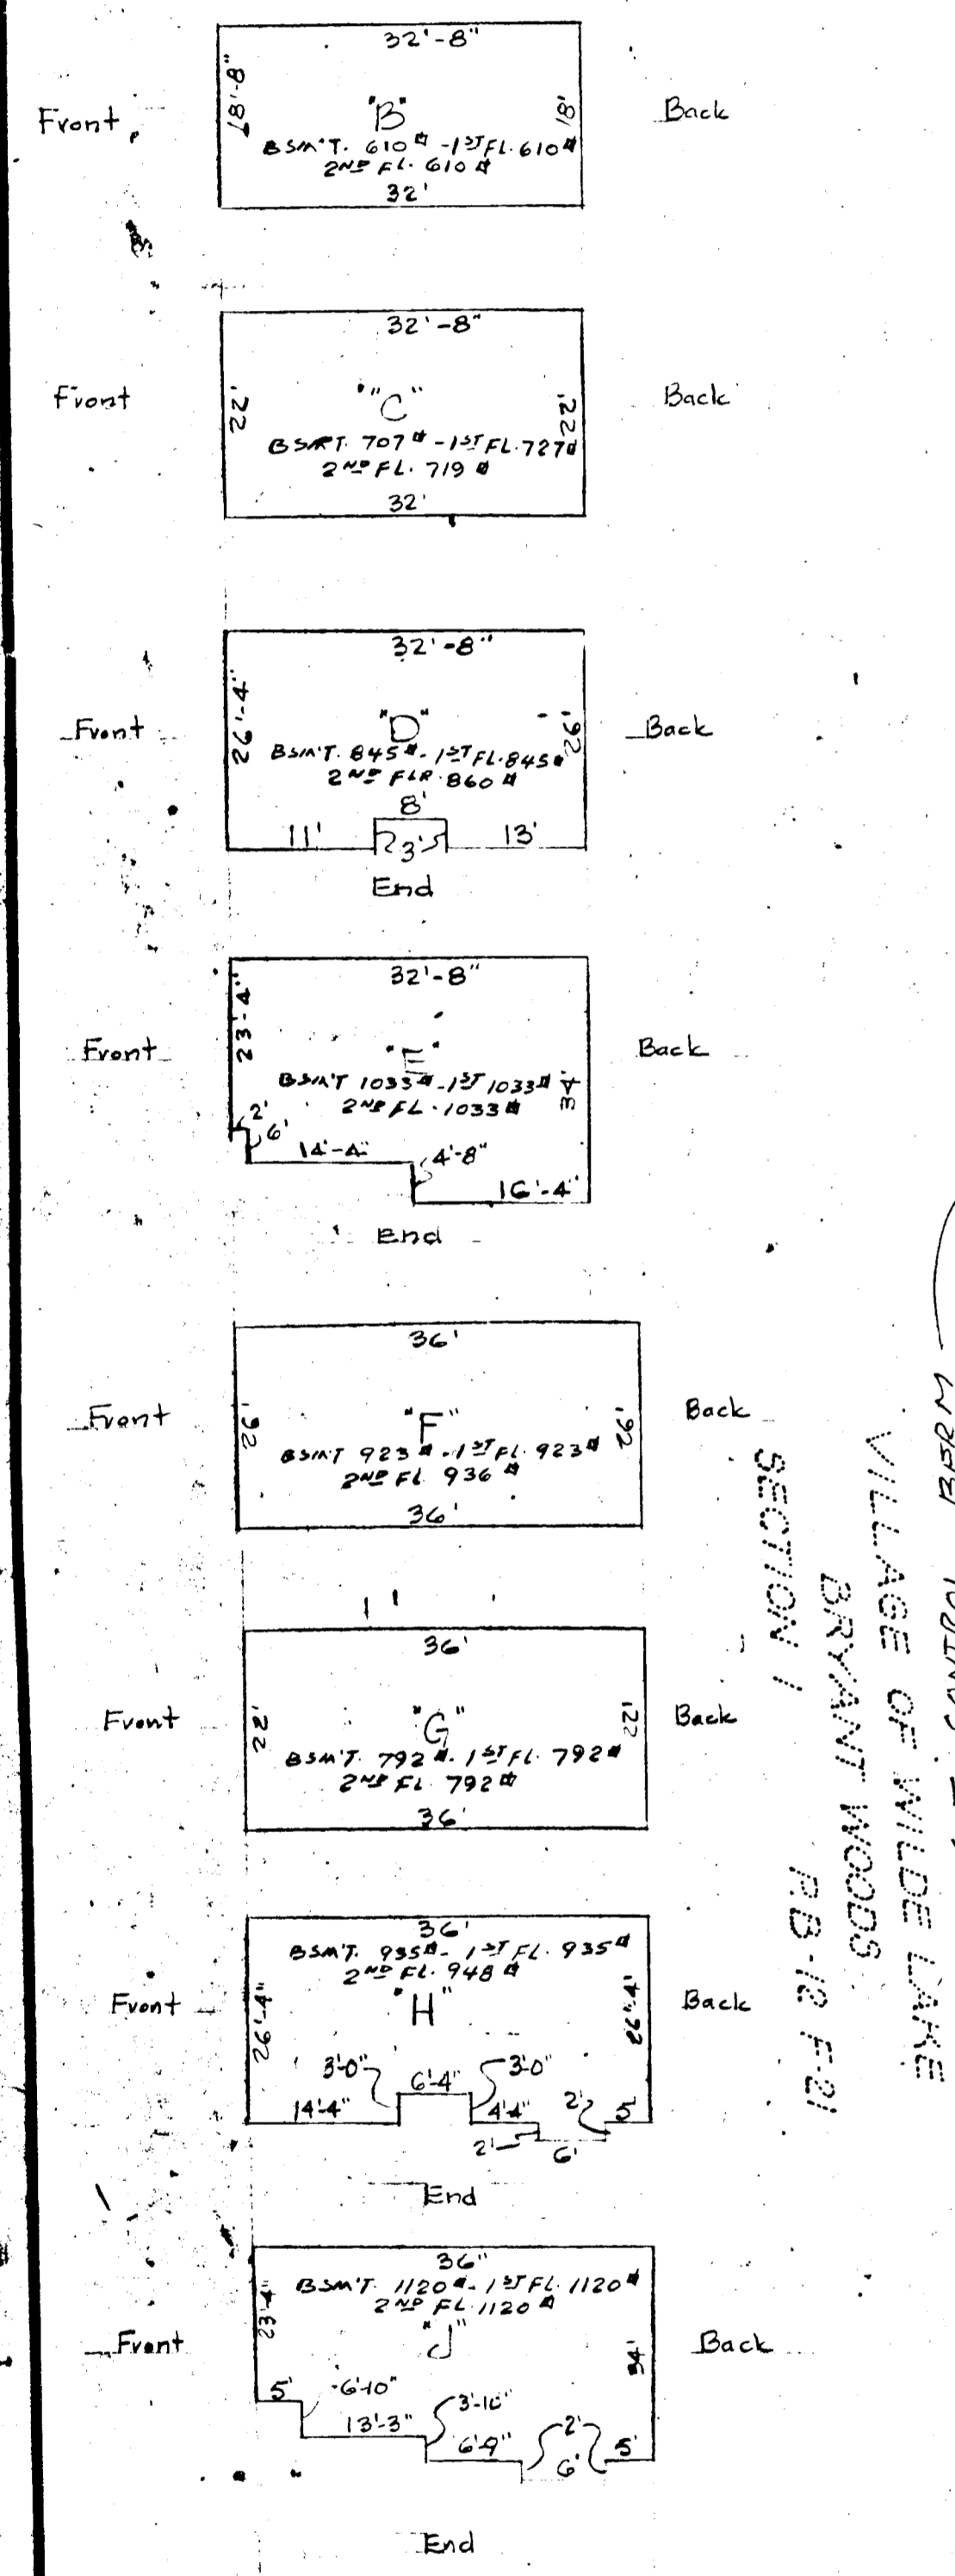 32'-8"
Front
18'-8"
"B"
18'
Back
BSM'T. 610⌗ - 1ST FL. 610⌗
2ND FL. 610⌗
32'
32'-8"
Front
22'
"C"
22'
Back
BSM'T. 707⌗ - 1ST FL. 727⌗
2ND FL. 719⌗
32'
32'-8"
Front
26'-4"
"D"
26'
Back
BSM'T. 845⌗ - 1ST FL. 845⌗
2ND FLR. 860⌗
8'
11'
3'
13'
End
32'-8"
Front
23'-4"
"E"
Back
BSM'T 1033⌗ - 1ST 1033⌗
34'
2ND FL. 1033⌗
2'
6'
14'-4"
4'-8"
16'-4"
End
36'
Front
26'
"F"
26'
Back
BSM'T 923⌗ - 1ST FL. 923⌗
2ND FL 936⌗
36'
36'
Front
22'
"G"
22'
Back
BSM'T. 792⌗ - 1ST FL. 792⌗
2ND FL. 792⌗
36'
36'
BSM'T. 935⌗ - 1ST FL. 935⌗
2ND FL. 948⌗
Front
26'-4"
"H"
Back
3'-0"
6'-4"
3'-0"
14'-4"
4'-4"
2'
5'
2'
6'
End
36"
BSM'T. 1120⌗ - 1ST FL. 1120⌗
2ND FL. 1120⌗
Front
23'-4"
"J"
34'
Back
5'
6'-10"
13'-3"
3'-10"
6'-9"
2'
6'
5'
End
CONTROL BERM
VILLAGE OF WILDE LAKE
BRYANT WOODS
SECTION 1 P.B-12 F-21